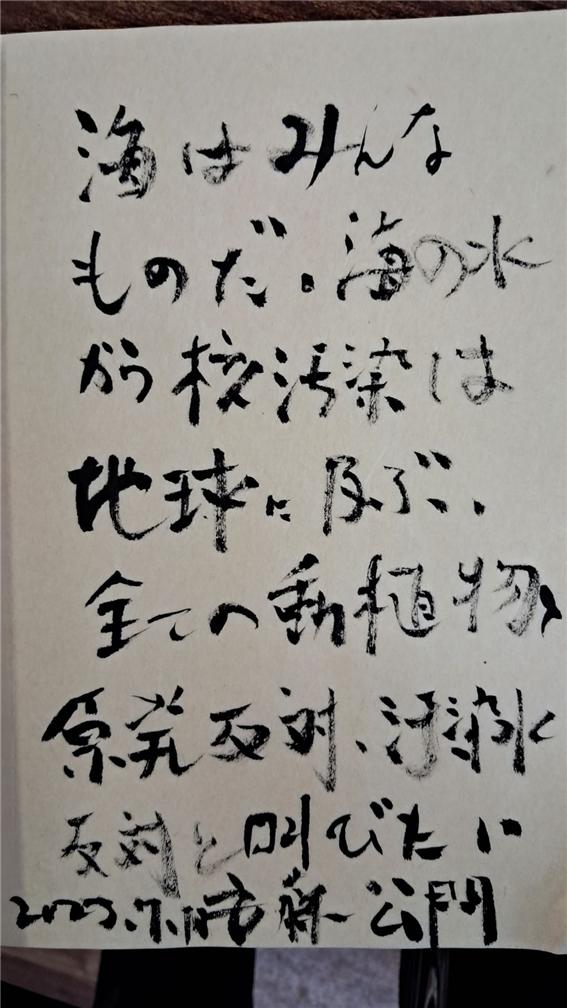 海はみんな
ものだ。海の水
から核汚染は
地球に及ぶ、
全ての動植物、
原発反対、汚染水
反対と叫びたい
2023.7.